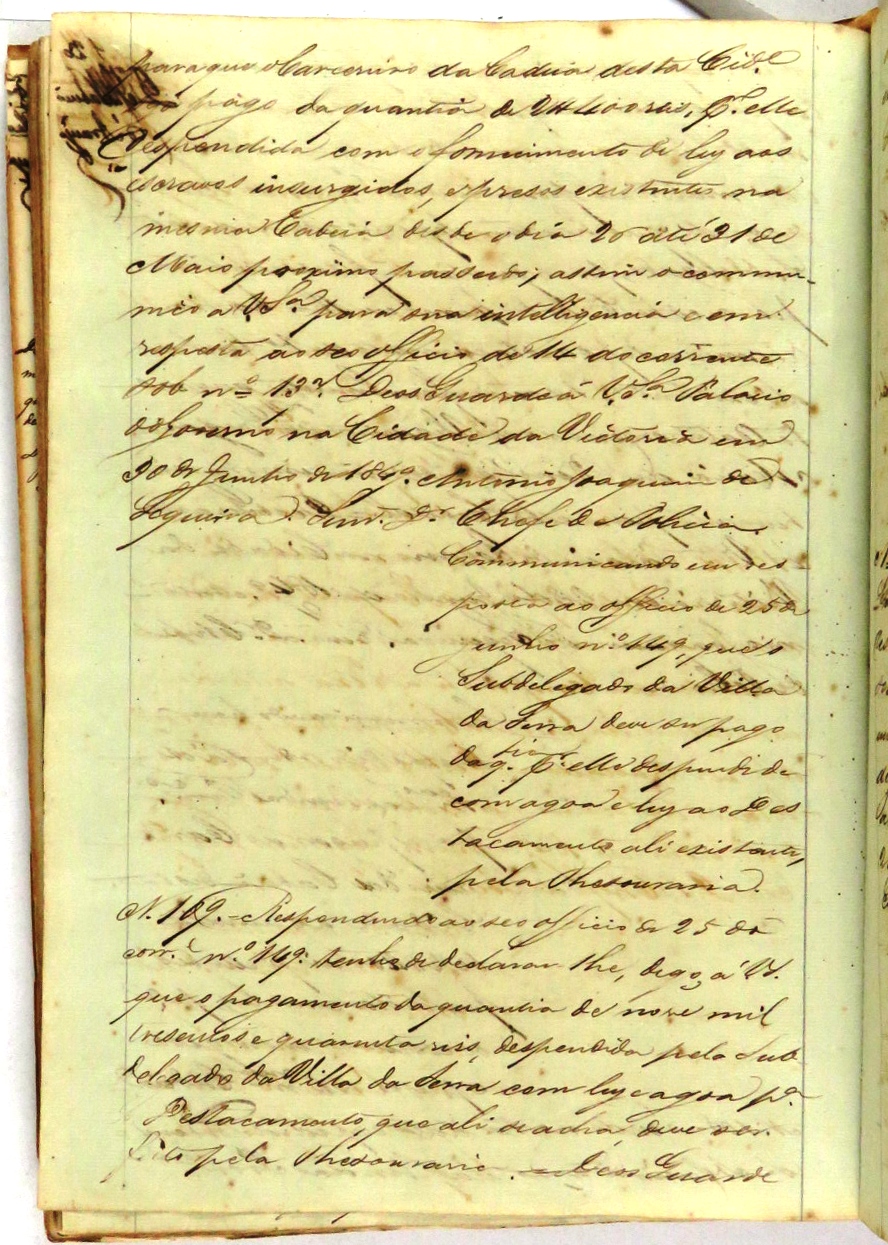 para que o Carcereiro da Cadeia desta Cid.e
pago da quantia de 24400 reis, q.' elle
despendida com o fornecimento de luz aos
escravos insurgidos, e presos existentes na
mesma Cadeia desde o dia 20 até 31 de
Maio proximo passado; assim o commu-
nico a V.S.a para sua intelligencia e em
resposta ao seo officio de 14 do corrente
sob nº 13 Deos Guarde á V.S.a Palacio
do Governo na Cidade da Victoria em
30 de Junho de 1849. Antonio Joaquim de
Sequeira. Snr. D.r Chefe de Policia.
Communicando em res-
posta ao officio de 25 de
Junho n.º 149, que o
Subdelegado da Villa
da Serra deve ser pago
da q.tia q.' elle despendida
com agoa e luz ao Des-
tacamento ali existente,
pela Thesouraria.
N. 169. - Respondendo ao seo officio de 25 do
corr.e n.º 149: tenho de declarar-lhe, digo, á V.S.
que o pagamento da quantia de nove mil
tresentos e quarenta reis, despendida pelo Sub
delegado da Villa da Serra com luz e agoa p.a
Destacamento, que ali se acha, deve ser
feito pela Thesouraria. = Deos Guarde